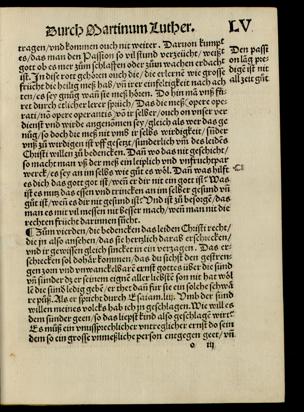 Durch Martinum Luther. LV.
tragen/vnd kommen ouch nit weiter. Daruon kumpt
es/das man den Passion so vil stund verzeücht/weißt
got ob es mer zům schlaffen oder zům wachen erdacht
ist. In dise rott gehören ouch die/die erlernē wie grosse
frücht die heilig meß hab/vñ irer einfeltigkeit nach ach
ten/es sey gnůg wañ sie meß hören. Do hin mā vnß fü
rt durch etlicher lerer sprüch/Das die meß/opere ope-
rati/nō opere operantis/vō ir selber/ouch on vnser ver
dienst vnd wirde angenömen sey/gleich als wer das ge
nůg/so doch die meß nit vmb ir selbs wirdigkeit/sūder
vnß zů wirdigen ist vff gesetz/sunderlich vm des leidēs
Christi willen zů bedencken. Dañ wo das nit geschicht/
so macht man vß der meß ein leiplich vnd vnfruchtpar
werck/es sey an im selbs wie gůt es wöl. Dañ was hilft
es dich das got got ist/weñ er dir nit ein got ist: Was
ist es nutz das essen vnd trincken an im selber gesund vñ
gůt ist/weñ es dir nit gesund ist: Vnd ist zů besorgē/das
man es mit vil messen nit besser mach/weñ man nit die
rechten frücht darinnen sůcht.
¶ Zům vierden/die bedencken das leiden Christi recht/
die jn also ansehen/das sie hertzlich darab erschrecken/
vnd ir gewissen gleich sincket in ein verzagen. Das er-
schrecken sol dohār kommen/das du sichst den gestren-
gen zorn vnd vnwanckelbarē ernst gottes über die sund
vñ sunder dz er seinem eignē aller liebstē son nit hat wöl
lē die sund ledig gebē/er thet dañ für sie ein solche schwā
re půß. Als er spricht durch Esaiam.liij. Vmb der sund
willen meines volcks hab ich jn geschlagen. Wie will es
dem sunder geen/so das liepst kind also geschlagē wirt:
Es můß ein vnussprechlicher vntreglicher ernst do sein
dem so ein grosse vnmeßliche person entgegen geet/vñ
o iij
Den passi
on lāg pre-
digē ist nit
all zeit gůt